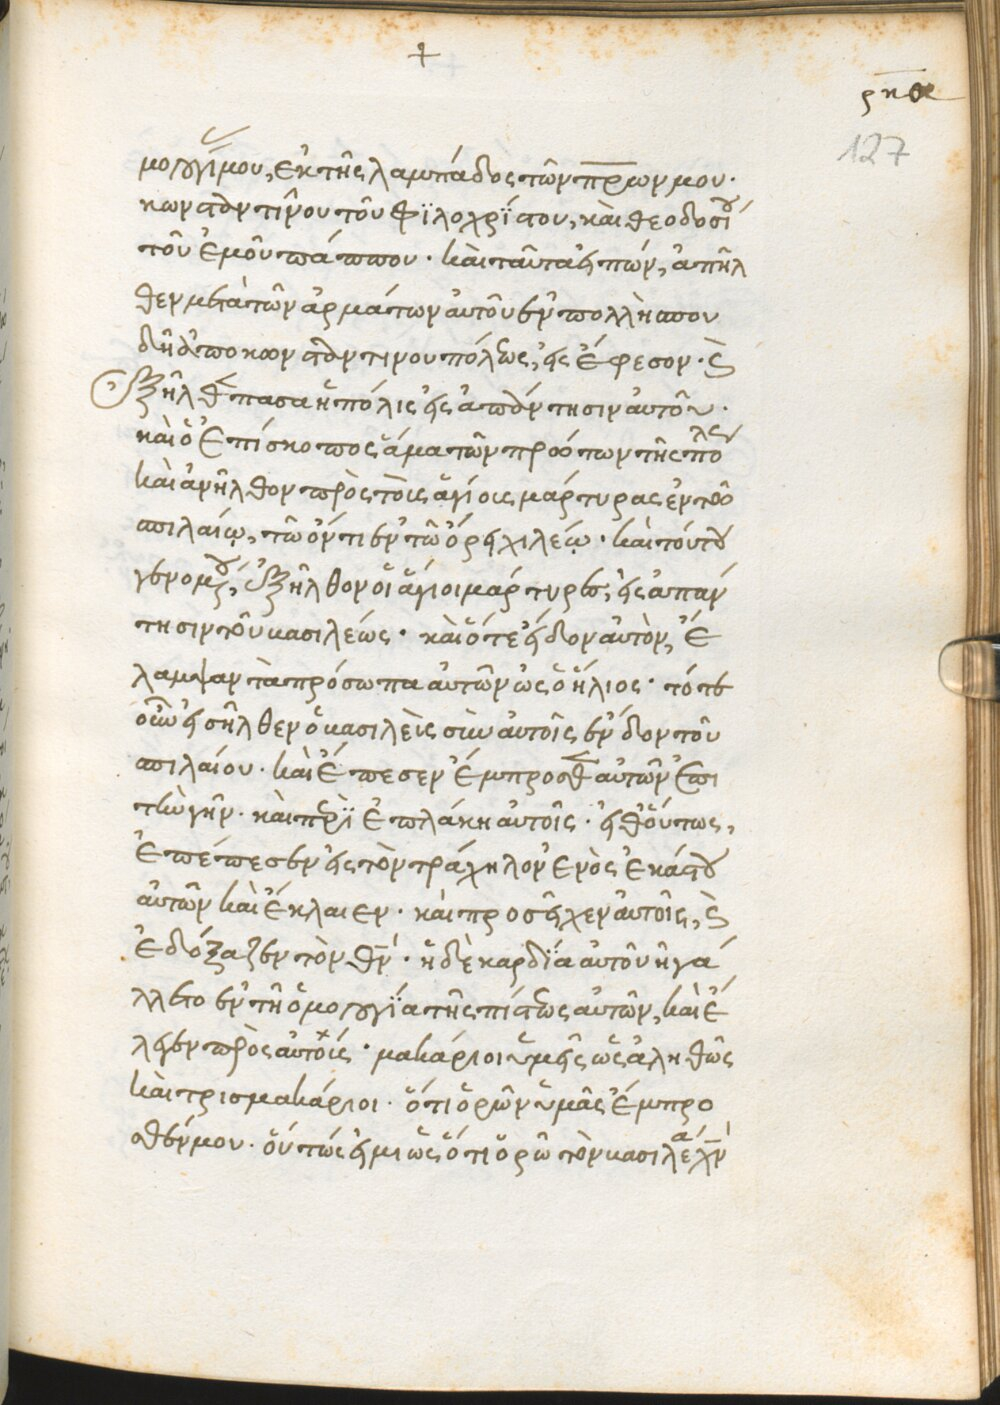 +
ρκθ
127
μολογίμου, ἐκ τῆς λαμπάδος τῶν πρ̅ων μου.
κωνσταντίνου τοῦ φϊλοχρΐστου, καὶ θεοδοσίου
τοῦ ἐμοῦ πάππου. καὶ ταῦτα εἰπών, ἀπῆλ
θεν μετὰ τῶν ἁρμάτων αὐτοῦ ἐν πολλῆ σπου
δῆ ἀπὸ κωνσταντινουπόλεως, εἰς ἔφεσον. καὶ
ἐξῆλθεν πᾶσα ἡ πόλις εἰς ἀπάντησιν αὐτοῦ.
καὶ ὁ ἐπίσκοπος ἅμα τῶν πρώτων τῆς πόλεως
καὶ ἀνῆλθον πρὸς τοὺς ἁγίους μάρτυρας ἐν τῶ
σπιλαίῳ, τῶ ὄντι ἐν τῶ ὄρει χιλεῴ. καὶ τούτου
γενομένου, ἐξῆλθον οἱ ἅγιοι μάρτυρες, εἰς ἀπάν
τησιν τοῦ βασιλέως. καὶ ὅτε εἶδον αὐτὸν, ἔ
λαμψαν τὰ πρόσωπα αὐτῶν ὡς ὁ ἥλιος. τότε
οὖν εἰσῆλθεν ὁ βασιλεὺς σὺν αὐτοῖς ἔνδον τοῦ
σπιλαίου. καὶ ἔπεσεν ἔμπροσθεν αὐτῶν ἐπι
τὴν γῆν. καὶ περιεπλάκη αὐτοῖς. εἶθ' οὕτως,
ἐπέπεσεν εἰς τὸν τράχηλον ἑνὸς ἑκάστου
αὐτῶν καὶ ἔκλαιεν. καὶ προσεῖχεν αὐτοῖς, καὶ
ἐδόξαζεν τὸν θ̅ν̅. ἡ δὲ καρδΐα αὐτοῦ ἠγά
λλετο ἐν τῆ ὁμολογΐα τῆς πίστεως αὐτῶν, καὶ ἔ
λεγεν πρὸς αὐτούς. μακάριοι ὑμεῖς ὡς ἀληθῶς
καὶ τρισμακάριοι. ὅτι ὁρῶν ὑμᾶς ἔμπρο
σθέν μου. οὕτως εἰμι ὡς ὅτι ὁρῶ τὸν βασιλέα χ̅ν̅